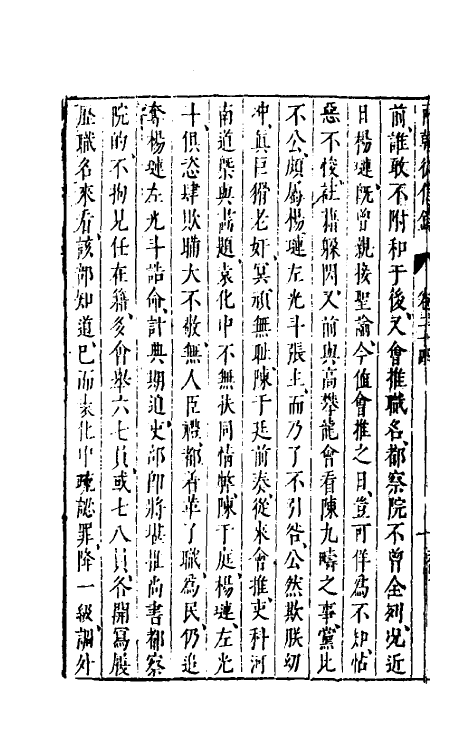 兩朝從信錄　卷二十四
前誰敢不附和于後又會推職名都察院不曾全列況近
日楊漣旣曾親接聖諭今値會推之日豈可佯爲不知怙
惡不悛社藉躱閃又前與高攀龍會看陳九疇之事黨比
不公頗屬楊漣左光斗張主而乃了不引咎公然欺朕幼
冲眞巨猾老奸冥頑無耻陳于廷前奏從來會推吏科河
南道槩與畵題袁化中不無扶同情弊陳于庭楊漣左光
十俱恣肆欺瞞大不敬無人臣禮都着革了職爲民仍追
奪楊漣左光斗誥命計典期迫吏部卽將堪推尚書都察
院的不拘見任在籍多會舉六七員或七八員各開寫履
歷職名來看該部知道已而袁化中疏認罪降一級調外